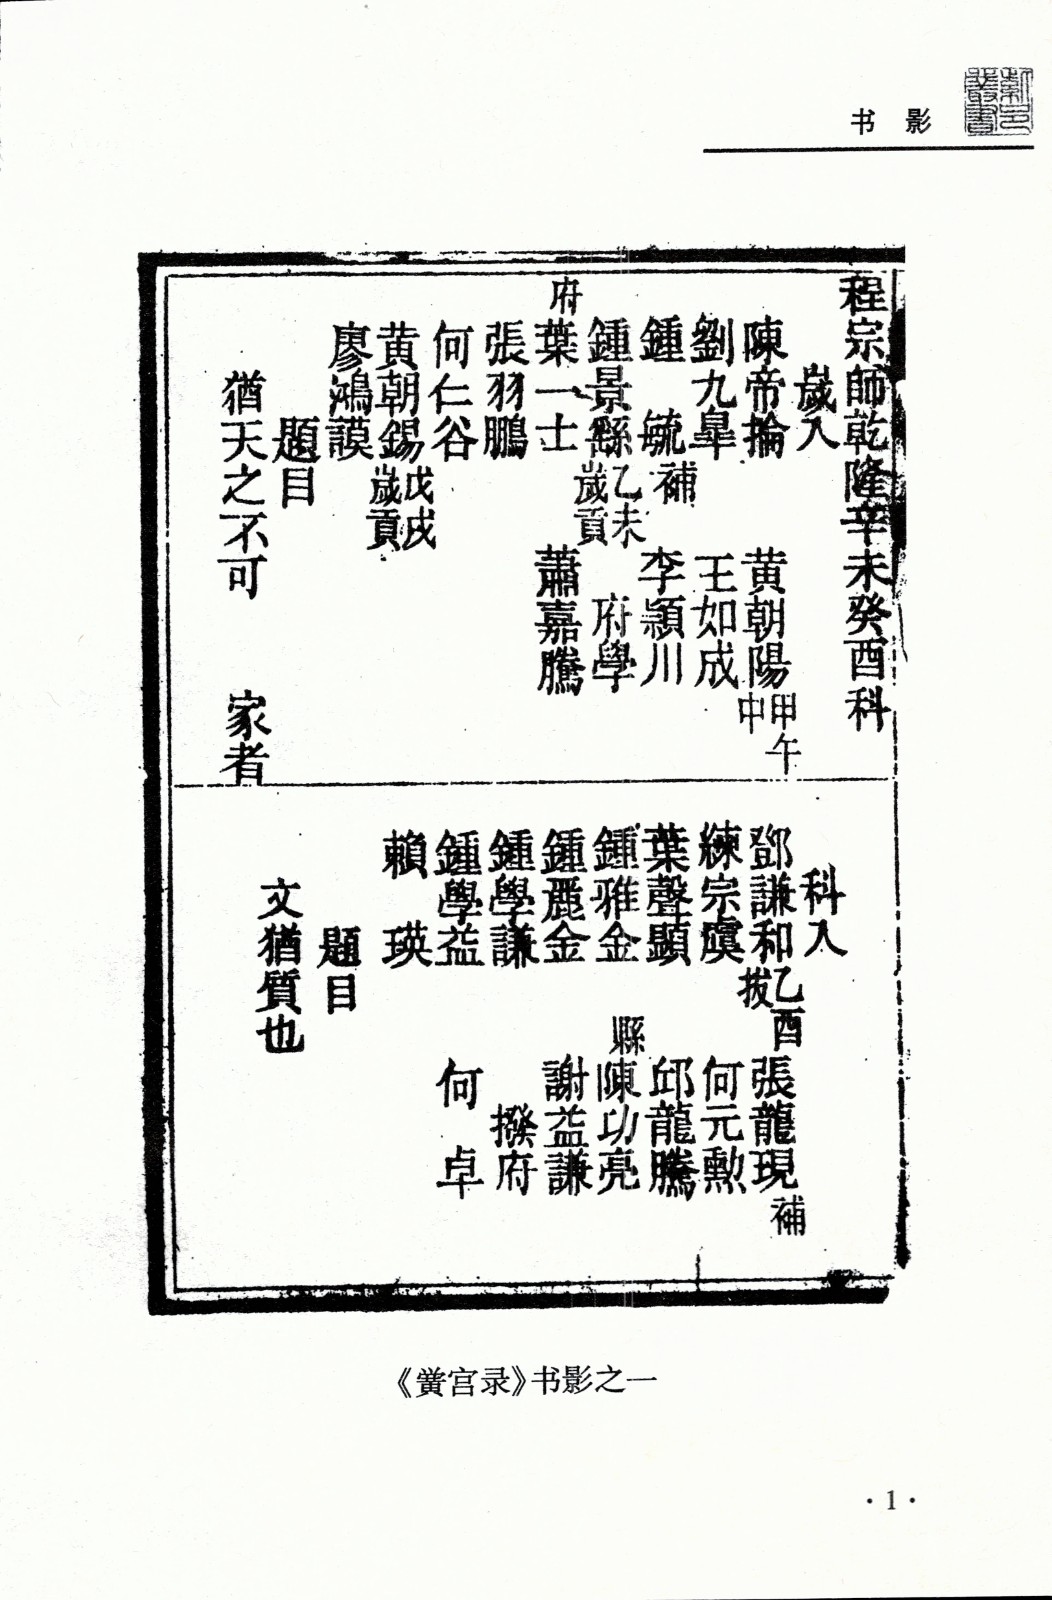 书影
紫邑叢書
程宗師乾隆辛未癸酉科
歲入
陳帝掄 黄朝陽甲午中
劉九臯 王如成
鍾毓補 李顯川
鍾景繇乙未歲貢 府學
府葉一士 蕭嘉騰
張羽鵬
何仁谷
黄朝錫戊戌歲貢
廖鴻謨
題目
猶天之不可 家者
科入
鄧謙和乙酉拔 張龍現補
練宗虞 何元勲
葉聲顯 邱龍騰
鍾雅金 縣陳功亮
鍾麗金 謝益謙
鍾學謙 撥府
鍾學益 何卓
賴瑛
題目
文猶質也
《黉宫录》书影之一
·1·